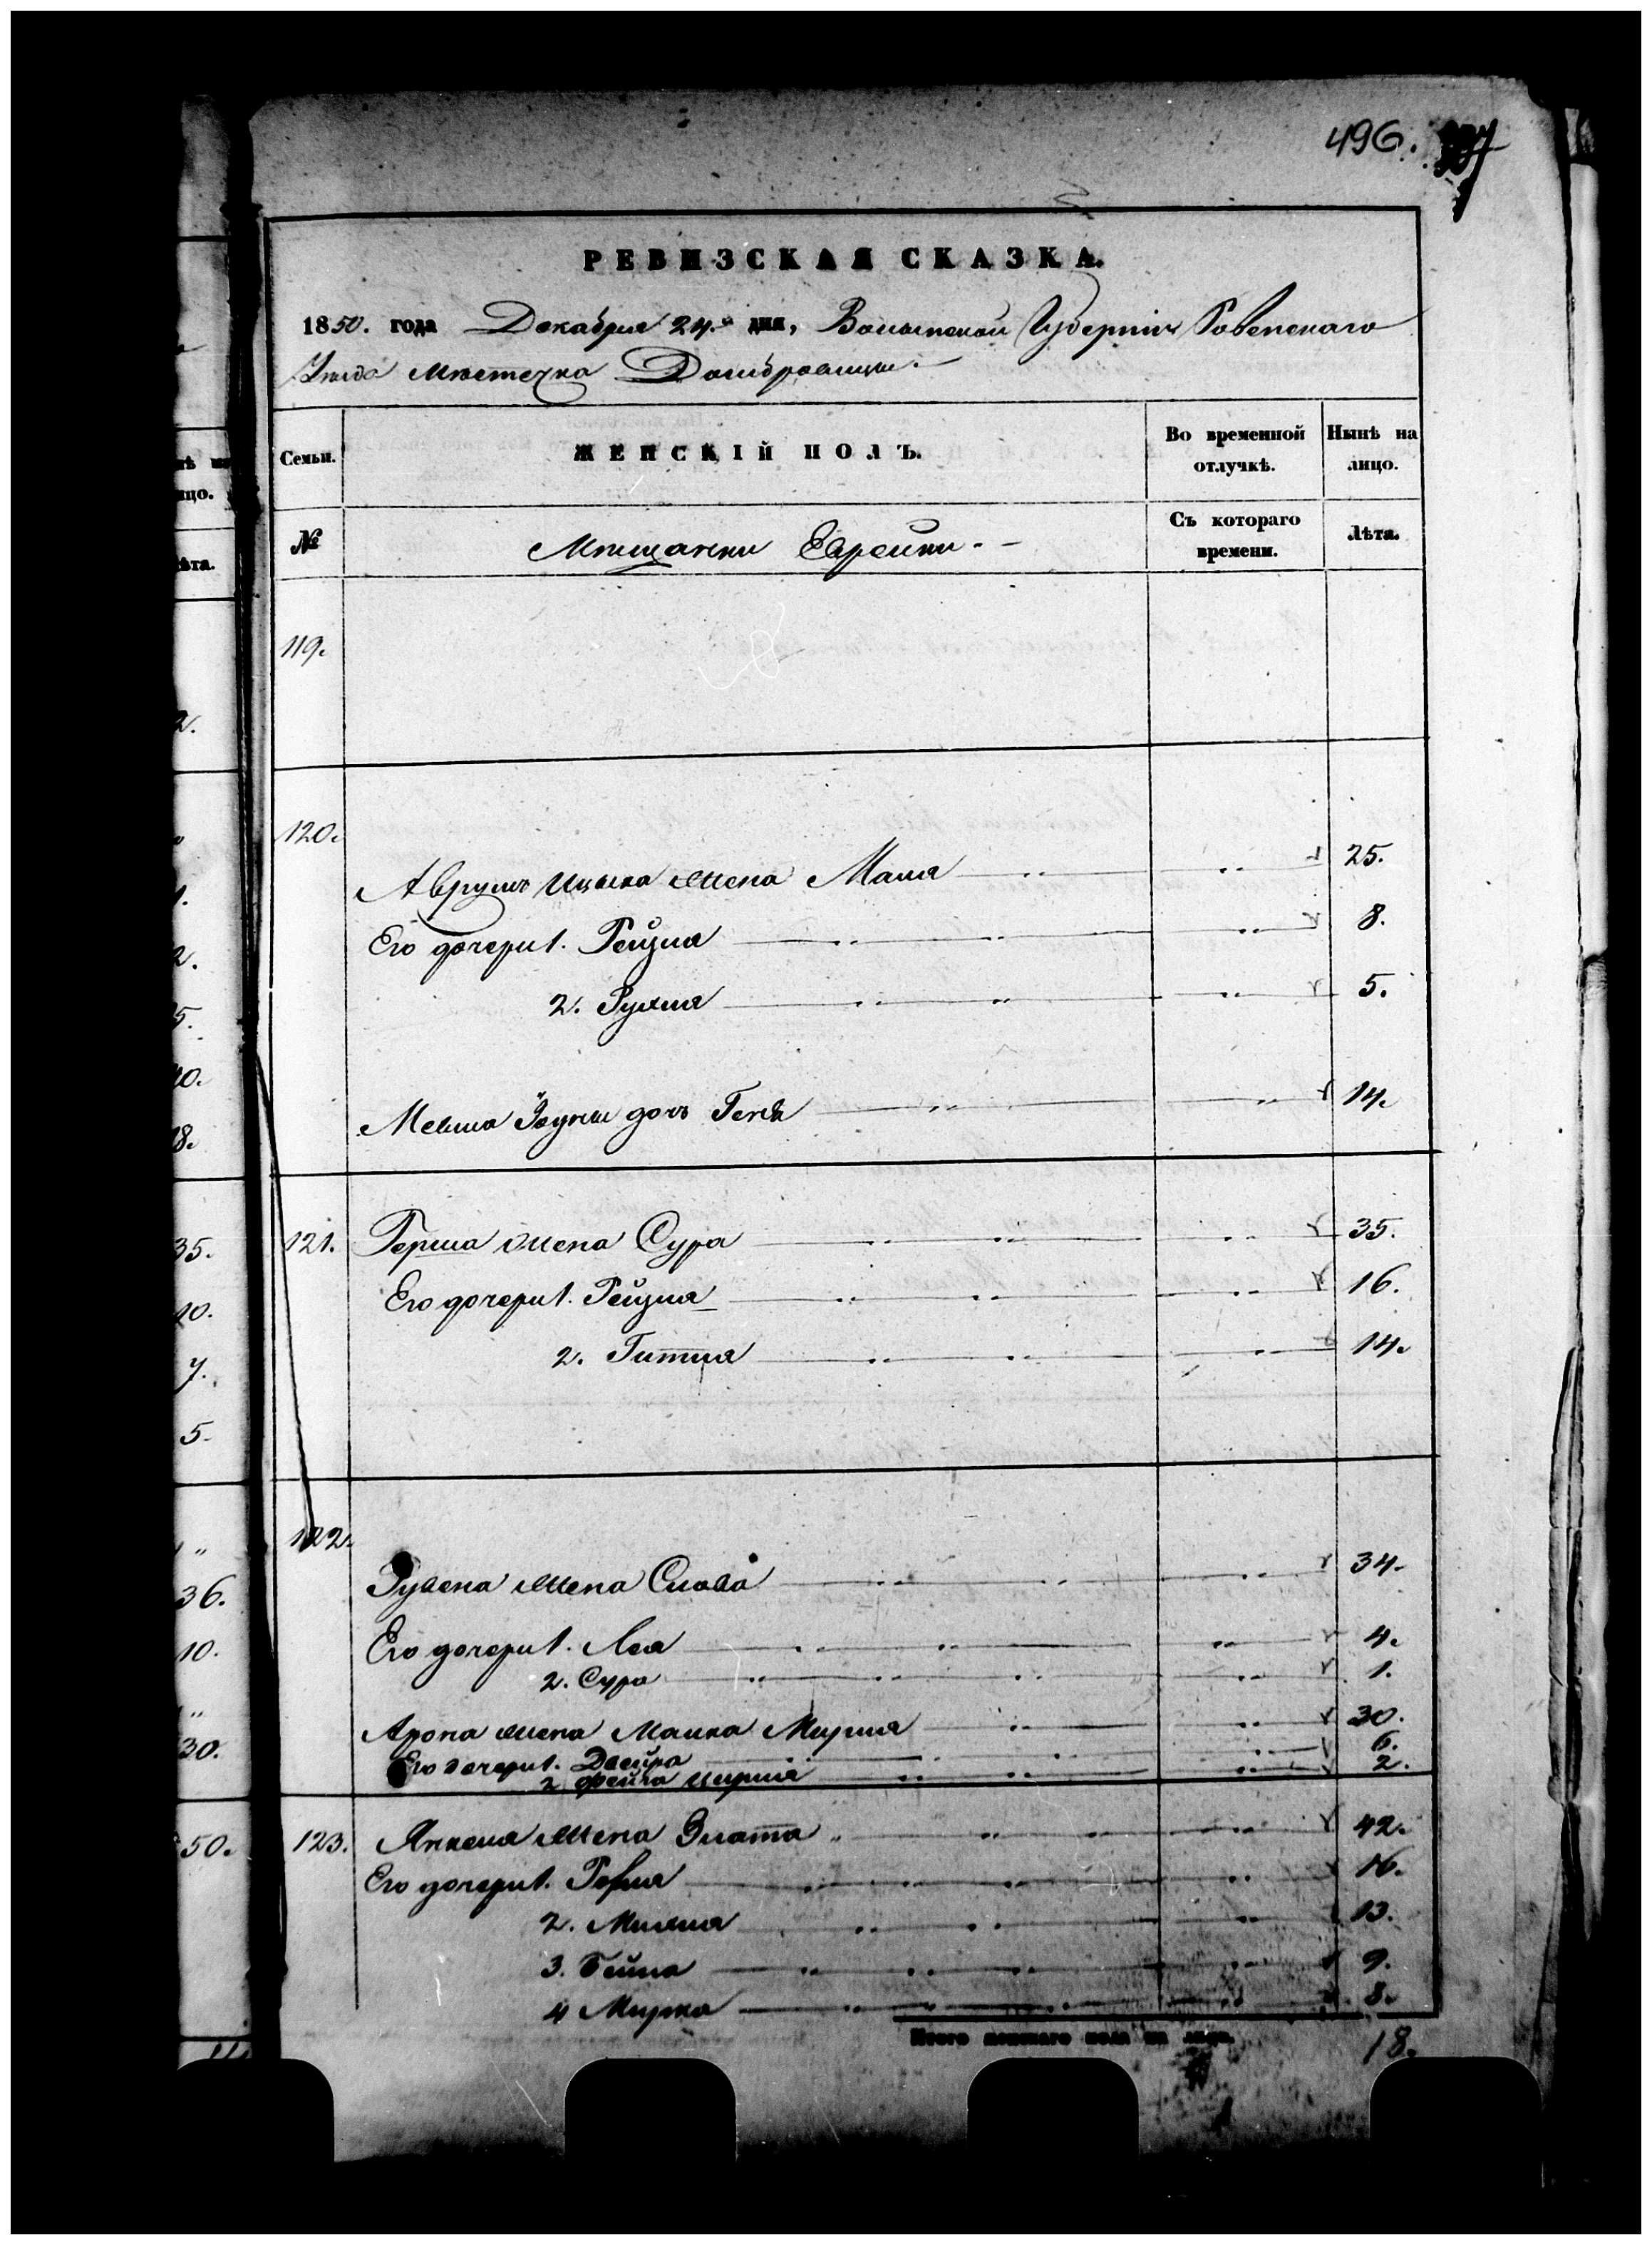 496.
РЕВИЗСКАЯ СКАЗКА.
1850. года Декабря 24.го дня, Волынской Губерніи Ровенскаго
Уѣзда мѣстечка Домбровицы.
Семьи.
ЖЕНСКІЙ ПОЛЪ.
Во временной отлучкѣ.
Нынѣ на лицо.
№
Мѣщанки Еврейки.
Съ котораго времени.
Лѣта.
119.
120.
Аврумъ Ицька жена Маля 25.
Его дочери 1. Рейзля 8.
2. Рухля 5.
дочь Геня 14.
121. Герша жена Сура 35.
Его дочери 1. Рейзля 16.
2. Гитля 14.
122.
Рувена жена Слова 34.
Его дочери 1. Лея 4.
2. Сура 1.
Арона жена Малка Мирля 30.
Его дочери 1. Двейра 6.
2. Фейга Цирля 2.
123. Янкеля жена Злата 42.
Его дочери 1. 16.
2. Михля 13.
3. Бейла 9.
4 Мирка 8.
Итого женскаго пола на лицо. 18.
35.
10.
7.
5.
36.
10.
30.
50.